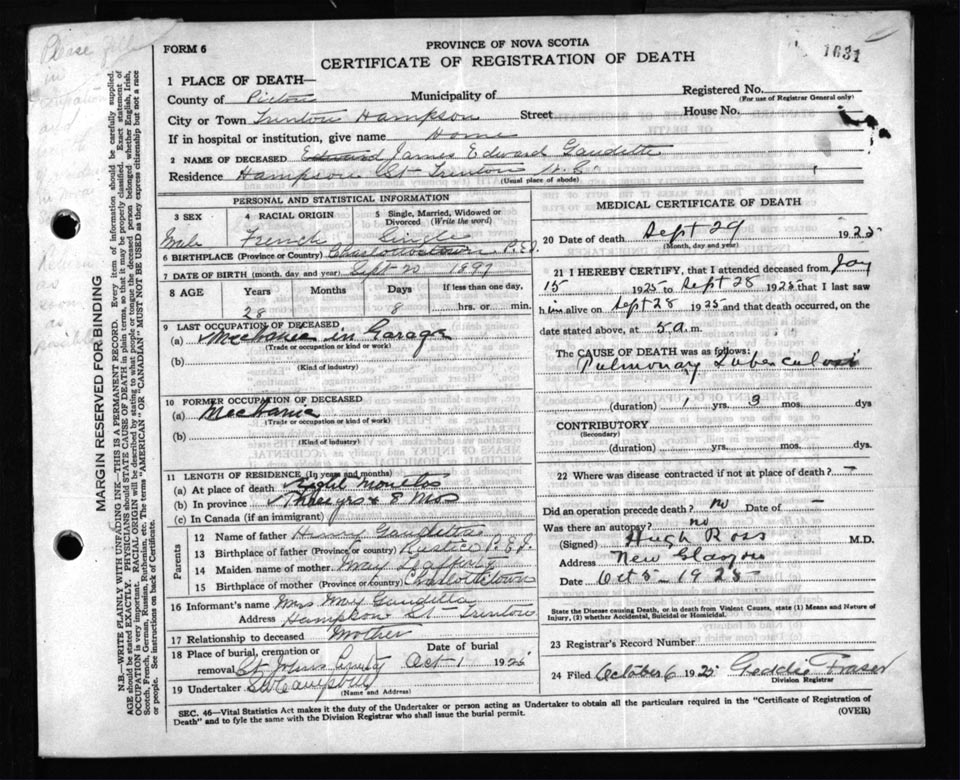 Please fill
in
occupation
and
return
as
soon
as
possible
1631
FORM 6
PROVINCE OF NOVA SCOTIA
CERTIFICATE OF REGISTRATION OF DEATH
MARGIN RESERVED FOR BINDING
N.B.—WRITE PLAINLY WITH UNFADING INK—THIS IS A PERMANENT RECORD. Every item of information should be carefully supplied.
AGE should be stated EXACTLY. PHYSICIANS should STATE CAUSE OF DEATH in plain terms, so that it may be properly classified. Exact statement of
OCCUPATION is very important. RACIAL ORIGIN will be described by stating to what people or tongue the deceased person belonged whether English, Irish,
Scotch, French, German, Russian, Ruthenian, etc. The terms "AMERICAN" OR "CANADIAN" MUST NOT BE USED as they express citizenship but not a race
or people. See instructions on back of Certificate.
1 PLACE OF DEATH—
County of Pictou Municipality of
Registered No.
(For use of Registrar General only)
City or Town Trenton Hampson Street House No.
If in hospital or institution, give name Home
2 NAME OF DECEASED Edward James Edward Gaudette
Residence Hampson St Trenton N.S.
(Usual place of abode)
PERSONAL AND STATISTICAL INFORMATION
3 SEX 4 RACIAL ORIGIN 5 Single, Married, Widowed or Divorced (Write the word)
Male French Single
6 BIRTHPLACE (Province or Country) Charlottetown P.E.I.
7 DATE OF BIRTH (month, day and year) Sept 20 1897
8 AGE Years Months Days If less than one day,
28 8 hrs. or min.
9 LAST OCCUPATION OF DECEASED
(a) Mechanic in Garage
(Trade or occupation or kind of work)
(b)
(Kind of industry)
10 FORMER OCCUPATION OF DECEASED
(a) Mechanic
(Trade or occupation or kind of work)
(b)
(Kind of industry)
11 LENGTH OF RESIDENCE (In years and months)
(a) At place of death Eight months
(b) In province Three yrs & 8 Mos
(c) In Canada (if an immigrant)
Parents
12 Name of father Henry Gaudette
13 Birthplace of father (Province or country) Rustico P.E.I.
14 Maiden name of mother May Lafferty
15 Birthplace of mother (Province or Country) Charlottetown
16 Informant's name Mrs May Gaudette
Address Hampson St Trenton
17 Relationship to deceased Mother
18 Place of burial, cremation or removal Date of burial
St Johns Oct 1 1925
19 Undertaker Campbell
(Name and Address)
MEDICAL CERTIFICATE OF DEATH
20 Date of death Sept 29 1925
(Month, day and year)
21 I HEREBY CERTIFY, that I attended deceased from Jany
15 1925 to Sept 28 1925 that I last saw
him alive on Sept 28 1925 and that death occurred, on the
date stated above, at 5 a.m.
The CAUSE OF DEATH was as follows:
Pulmonary Tuberculosis
(duration) 1 yrs. 3 mos. dys
CONTRIBUTORY
(Secondary)
(duration) yrs. mos. dys.
22 Where was disease contracted if not at place of death? —
Did an operation precede death? no Date of —
Was there an autopsy? no
(Signed) Hugh Ross M.D.
Address New Glasgow
Date Oct 5 - 1925
State the Disease causing Death, or in death from Violent Causes, state (1) Means and Nature of
Injury, (2) whether Accidental, Suicidal or Homicidal.
23 Registrar's Record Number
24 Filed October 6 1925 Geddie Fraser
Division Registrar
SEC. 46—Vital Statistics Act makes it the duty of the Undertaker or person acting as Undertaker to obtain all the particulars required in the "Certificate of Registration of
Death" and to fyle the same with the Division Registrar who shall issue the burial permit.
(OVER)